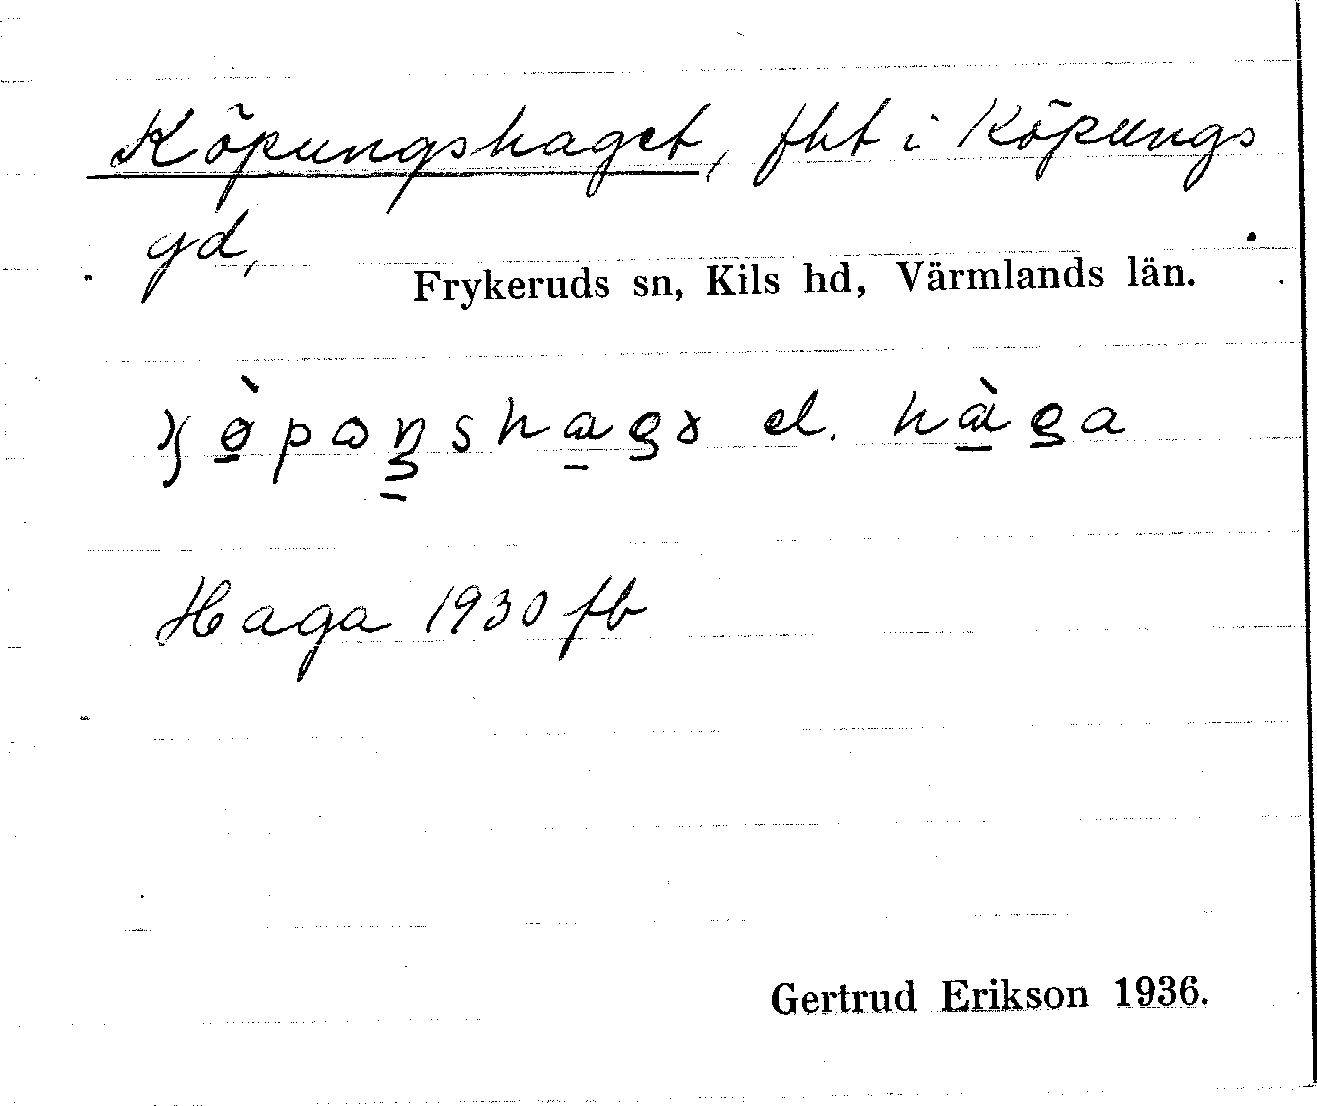 Köpungshaget, fht i Köpungs
gd,
Frykeruds sn, Kils hd, Värmlands län.
el.
Haga 1930 fb
Gertrud Erikson 1936.